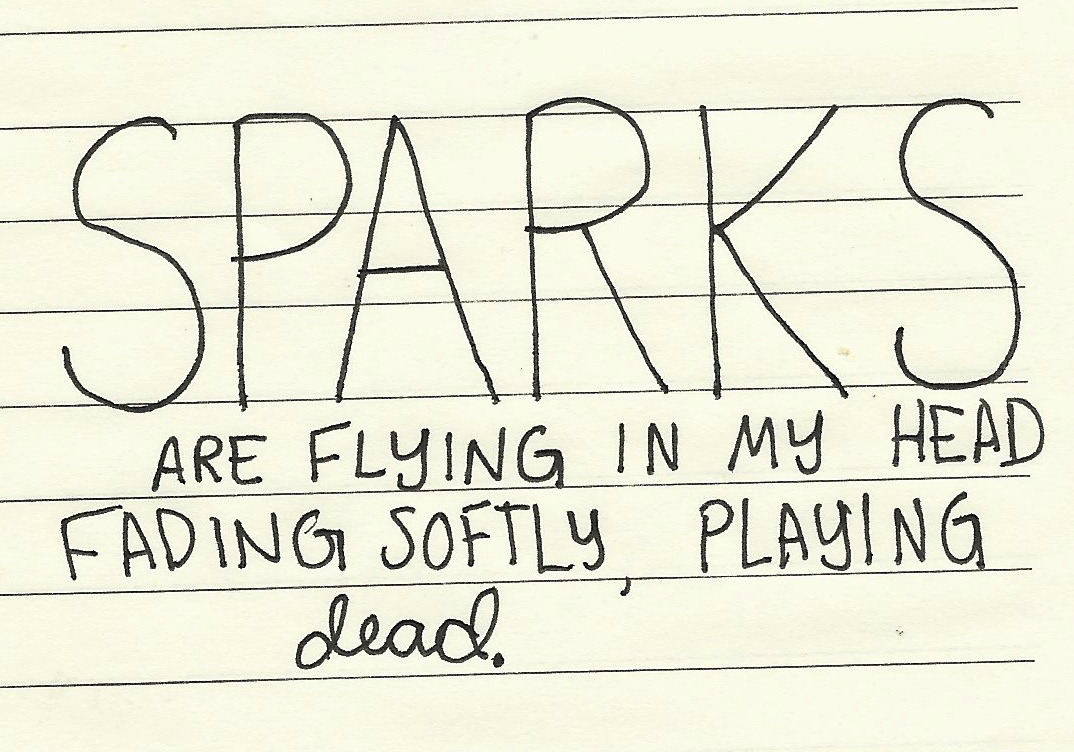 SPARKS
ARE FLYING IN MY HEAD
FADING SOFTLY, PLAYING
dead.